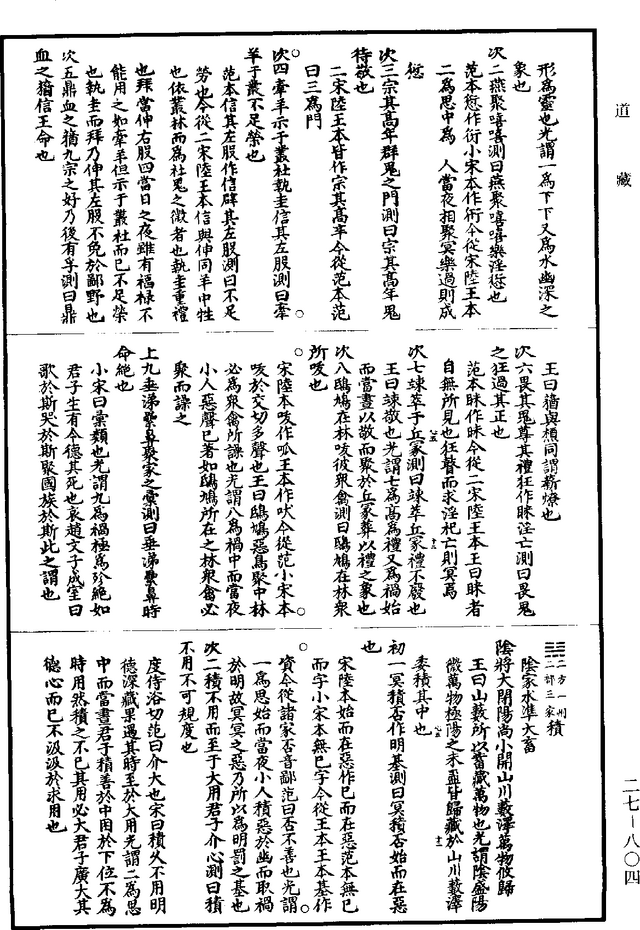 道藏
形為靈也光謂一為下下又為水幽深之
象也
次二燕聚嘻嘻測曰燕聚嘻嘻樂淫愆也
范本愆作衍小宋本作術今從宋陸王本
二為思中為 人當夜相聚冥樂過則成
愆
次三宗其高年群鬼之門測曰宗其高年鬼
待敬也
二宋陸王本皆作宗其高年今從范本范
曰三為門
次四牽羊示于叢社執圭信其左股測曰牽
羊于叢不足榮也
范本信其左股作信辟其左股測曰不足
勞也今從二宋陸王本信與伸同羊中牲
也依叢林而為社鬼之微者也執圭重禮
也拜當伸右股四當日之夜雖有福祿不
能用之如牽羊但示于叢社而已不足榮
也執圭而拜乃伸其左股不免於鄙野也
次五鼎血之蕕九宗之好乃後有孚測曰鼎
血之蕕信王命也
王曰蕕與槱同謂薪燎也
次六畏其鬼尊其禮狂作昧淫亡測曰畏鬼
之狂過其正也
范本昧作眛今從二宋陸王本王曰昧者
自無所見也狂瞽而求淫祀亡則冥焉
次七竦萃于丘冢測曰竦萃丘冢禮不廢也
王曰竦敬也光謂七為高為禮又為禍始
而當晝以敬而聚於丘冢葬以禮之象也
次八鴟鳩在林咬彼眾禽測曰鴟鳩在林眾
所咬也
宋陸本咬作呱王本作吠今從范小宋本
咬於交切多聲也王曰鴟鳩惡鳥聚中林
必為眾禽所譟也光謂八為禍中而當夜
小人惡聲已著如鴟鳩所在之林眾禽必
聚而譟之
上九垂涕纍鼻聚家之彙測曰垂涕纍鼻時
命絕也
小宋曰彙類也光謂九為禍極為殄絕如
君子生有令德其死也哀趙文子成室曰
歌於斯哭於斯聚國族於斯此之謂也
二方一州二部三家積
陰家水準大畜
陰將大閉陽尚小開山川藪澤萬物攸歸
王曰山藪所以畜藏萬物也光謂陰盛陽
微萬物極陽之未盡皆歸藏於山川藪澤
委積其中也
初一冥積否作明基測曰冥積否始而在惡
也
宋陸本始而在惡作已而在惡范本無已
而字小宋本無已字今從王本王本基作
資今從諸家否音鄙范曰否不善也光謂
一為思始而當夜小人積惡於幽而取禍
於明故冥冥之惡乃所以為明罰之基也
次二積不用而至于大用君子介心測曰積
不用不可規度也
度待洛切范曰介大也宋曰積久不用明
德深藏果遇其時至於大用光謂二為思
中而當晝君子積善於中困於下位不為
時用然積之不已其用必大君子廣大其
德心而已不汲汲於求用也
二七－八〇四